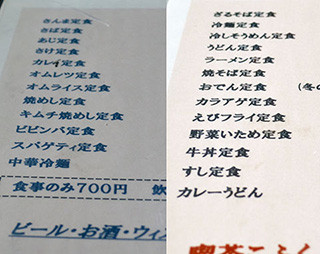 さんま定食
さば定食
あじ定食
さけ定食
カレイ定食
オムレツ定食
オムライス定食
焼めし定食
キムチ焼めし定食
ビビンバ定食
スパゲティ定食
中華冷麺
食事のみ700円 飲
ビール・お酒・ウィス
ざるそば定食
冷麺定食
冷しそうめん定食
うどん定食
ラーメン定食
焼そば定食
おでん定食 (冬の
カラアゲ定食
えびフライ定食
野菜いため定食
牛丼定食
すし定食
カレーうどん
喫茶こふく